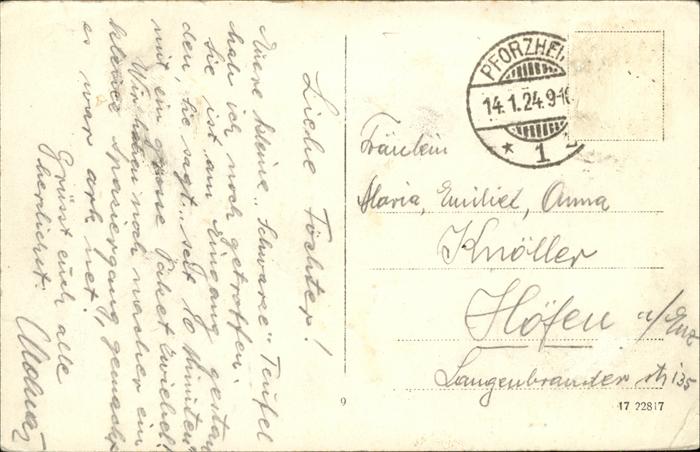 Liebe Töchter!
Eure kleine "Schwarze" Teufel
hab ich noch getroffen.
sie ist am Eingang gestan
den, sie sagt "seit 10 Minuten"
mit ein grosse Paket Zwiebel!
Wir haben noch nachher ein
kleines Spaziergang gemacht
es war arg net!
Grüsst euch alle
herzlichst.
PFORZHEI
14.1.24.9-10
* 1
Fräulein
Maria, Emiliel, Anna
Knöller
Höfen a/Enz
Langenbrander str 135
9
17 22817